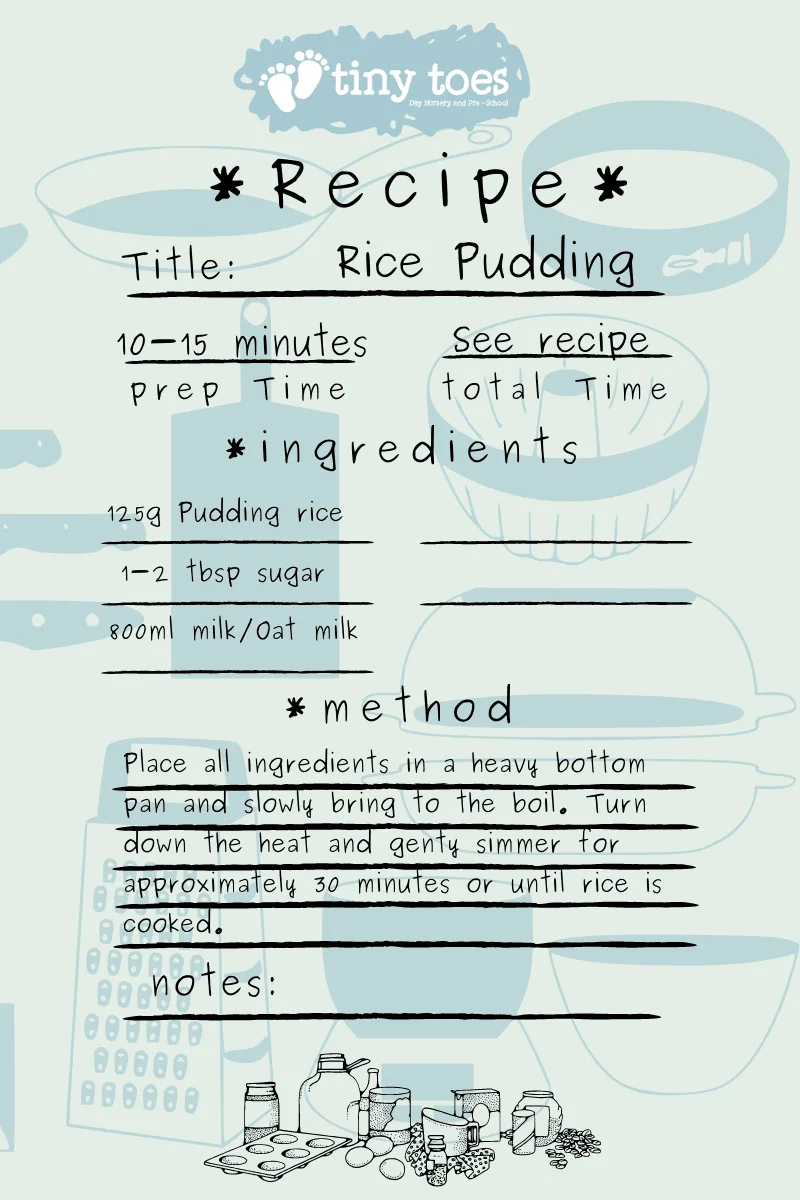 tiny toes
Day Nursery and Pre-School
*Recipe*
Title: Rice Pudding
10-15 minutes See recipe
prep Time total Time
*ingredients
125g Pudding rice
1-2 tbsp sugar
800ml milk/Oat milk
*method
Place all ingredients in a heavy bottom
pan and slowly bring to the boil. Turn
down the heat and genty simmer for
approximately 30 minutes or until rice is
cooked.
notes: